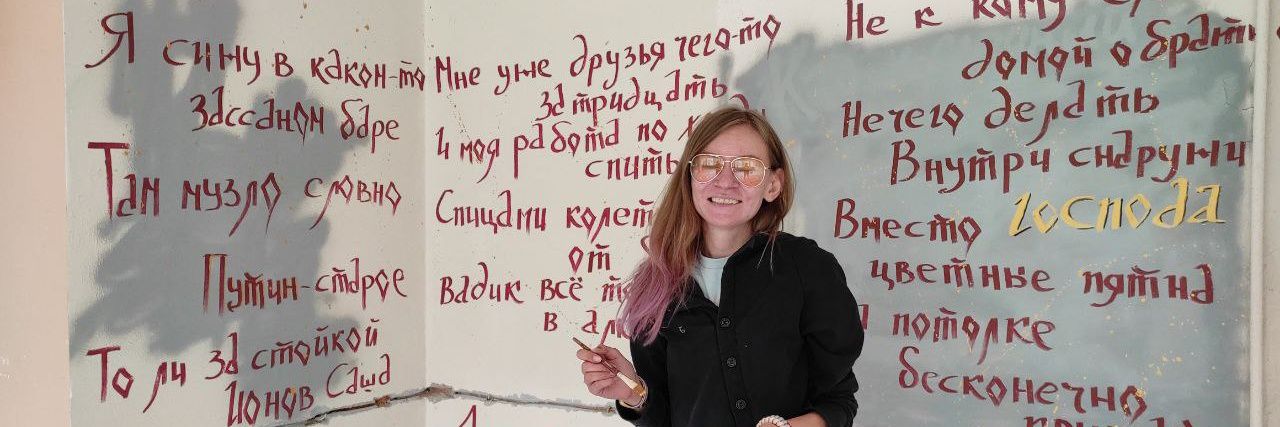 Я сижу в каком-то
зассаном баре
Там музло словно
Путин-старое
То ли за стойкой
Ионов Саша
Мне уже друзья чего-то
за тридцать
И моя работа по
спить
Спицами колет
от
Вадик всё
в
Не к кому
домой обратно
Нечего делать
Внутри снаружи
Вместо господа
цветные пятна
потолке
бесконечно